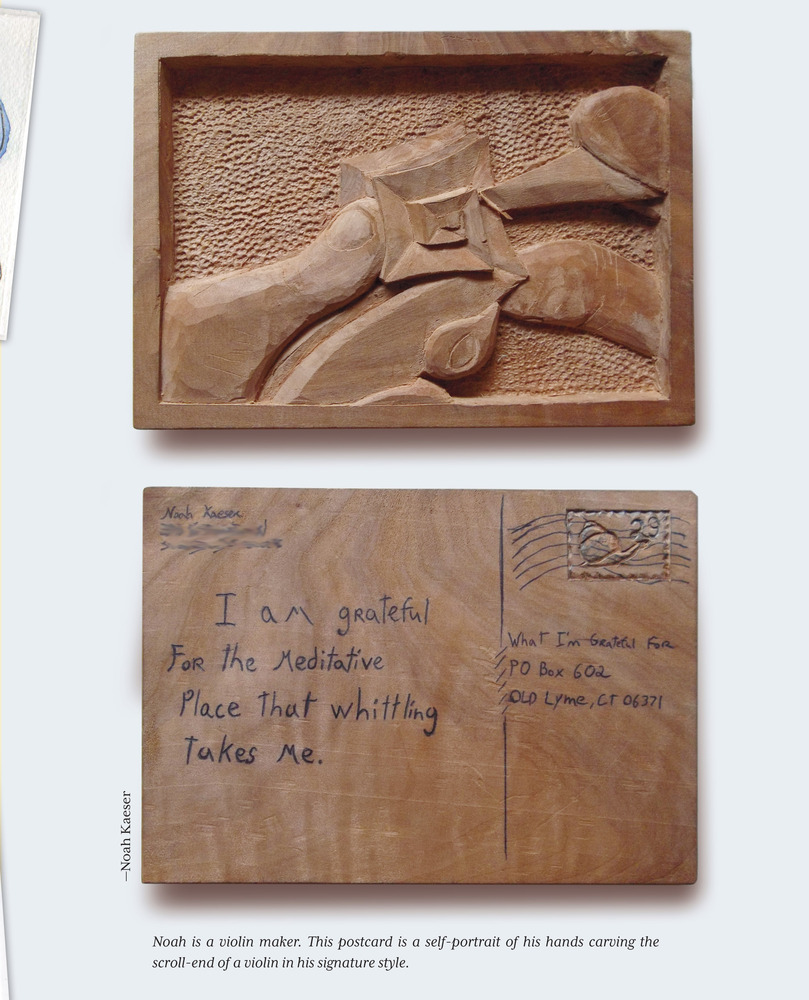 Noah Kaeser
29
I am grateful
For the Meditative
Place that whittling
takes me.
What I'm Grateful For
PO Box 602
OLD Lyme, CT 06371
—Noah Kaeser
Noah is a violin maker. This postcard is a self-portrait of his hands carving the
scroll-end of a violin in his signature style.